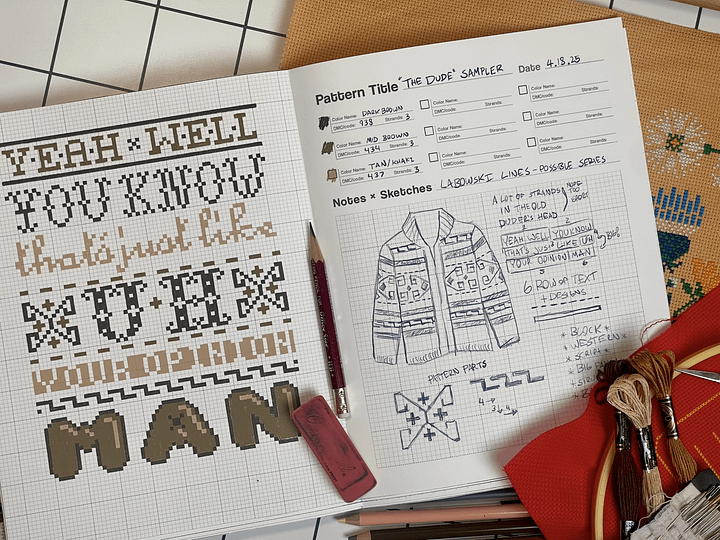 YEAH × WELL
YOU KNOW
that's just like
UH
YOUR OPINION
MAN
Pattern Title "THE DUDE" SAMPLER Date 4.18.25
Color Name: DARK BROWN
DMC/code: 938 Strands: 3
Color Name:
DMC/code: Strands:
Color Name:
DMC/code: Strands:
Color Name: MID BROWN
DMC/code: 434 Strands: 3
Color Name:
DMC/code: Strands:
Color Name:
DMC/code: Strands:
Color Name: TAN/KHAKI
DMC/code: 437 Strands: 3
Color Name:
DMC/code: Strands:
Color Name:
DMC/code: Strands:
Notes × Sketches LABOWSKI LINES - POSSIBLE SERIES
A LOT OF STRANDS
IN THE OLD
DUDER'S HEAD
YEAH WELL YOU KNOW
THAT'S JUST LIKE UH
YOUR OPINION MAN
6 ROW OF TEXT
+ DESIGNS
* BLOCK *
* WESTERN *
* SCRIPT *
PATTERN PARTS